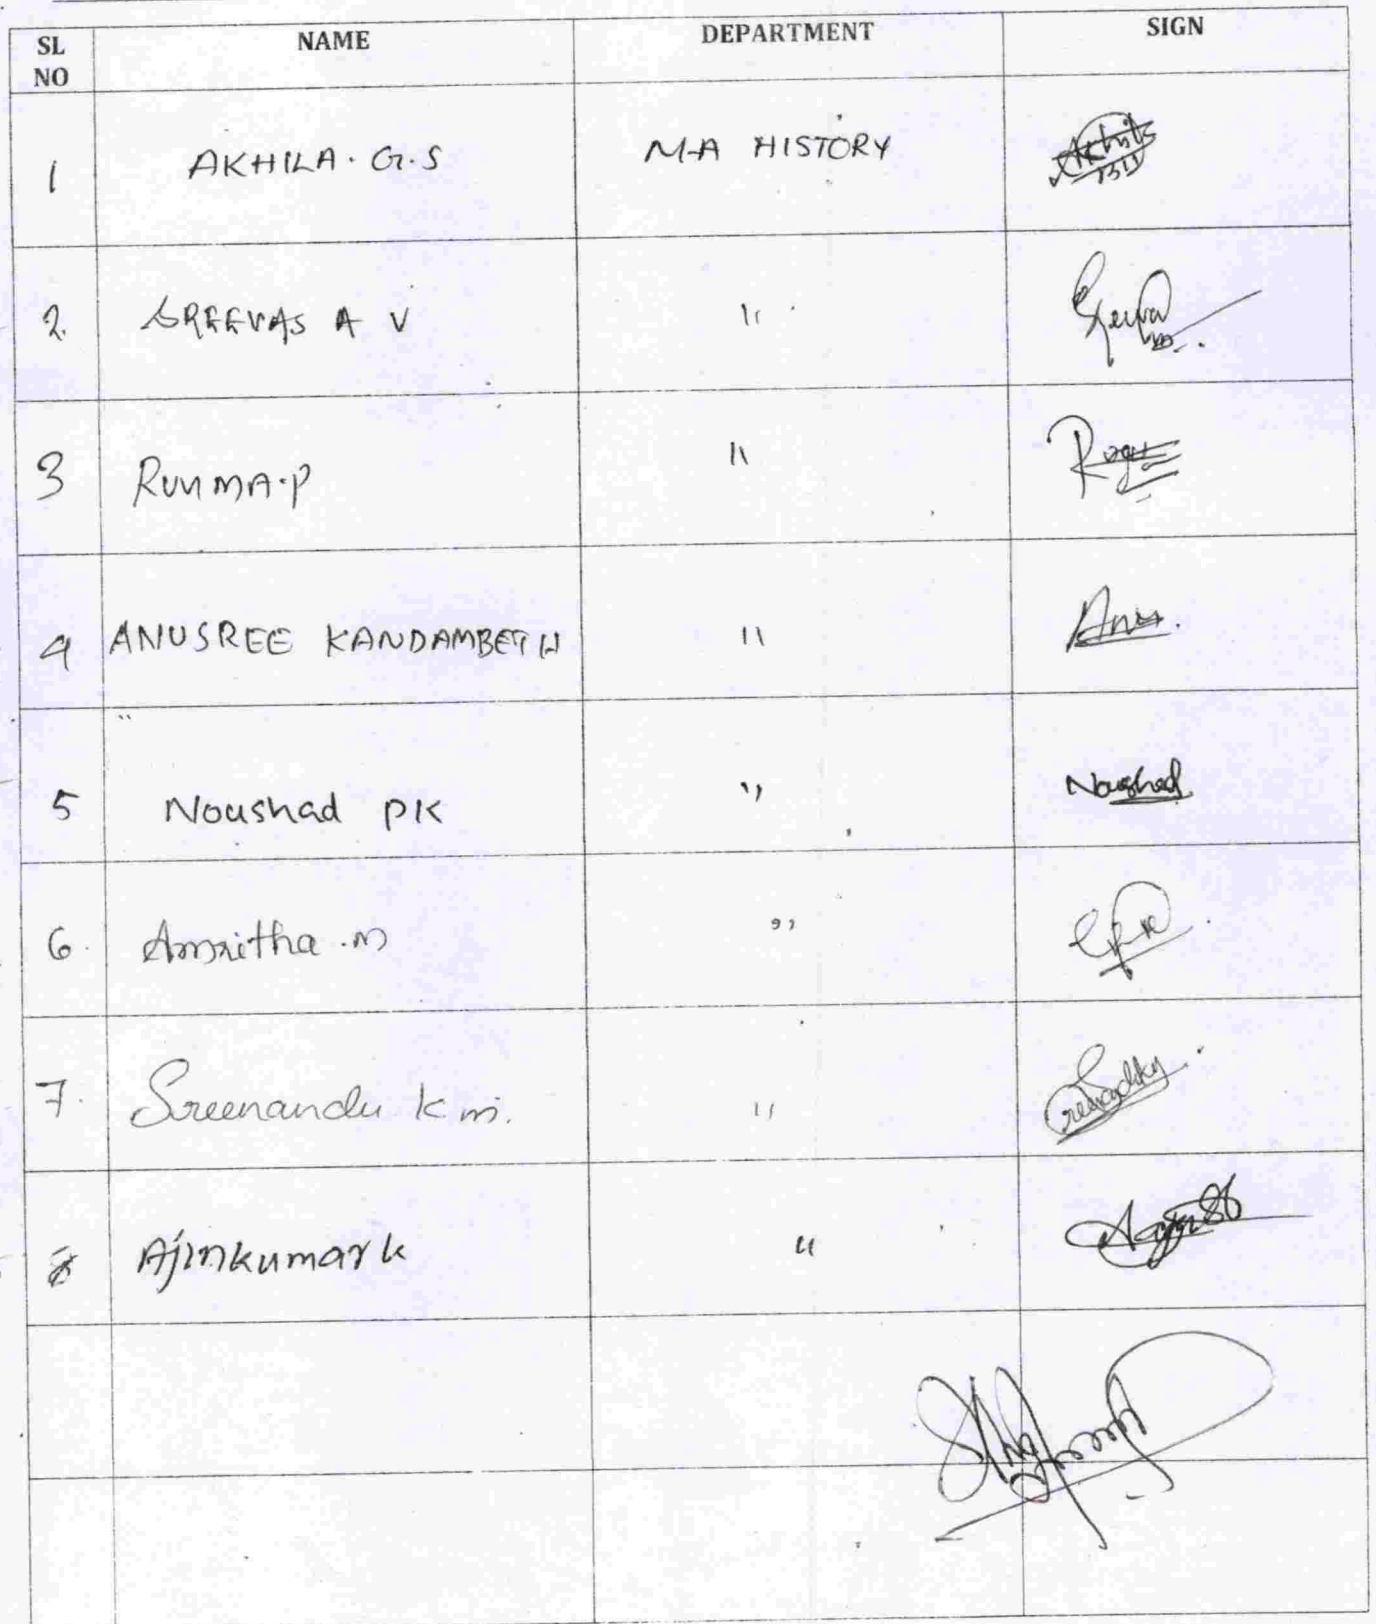 SL NO NAME DEPARTMENT SIGN
1 AKHILA. G.S M.A HISTORY
2. SREEVAS A V "
3 "
4 ANUSREE KANDAMBETH " Anu.
5 Noushad PK " Noushad
6. Amritha .m "
7. Sreenandu K m. "
8 Ajinkumar k "